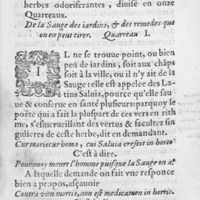 herbes odoriferantes, diuisé en onze
Quarreaux.
De la Sauge des iardins, & des remedes que
on en peut tirer. Quarreau I.
IL ne se trouue point, ou bien
peu de iardins, soit aux chāps
soit à la ville, ou il n'y ait de la
Sauge : elle est appelee des La-
tins Saluia, pource qu'elle sau
ue & conserue en santé plusieurs : parquoy le
poete qui a fait la pluspart de ces vers en rith
me, s'esmerueillant des vertus & facultez sin
gulieres de ceste herbe, dit en demandant.
Cur morietur homo, cui Saluia crescit in horto?
C'est à dire.
Pourquoy meurt l'homme puisque la Sauge en a
A laquelle demande on fait vne responce
bien a propos, asçauoir
Contra vim mortis, non est medicamen in hortis.